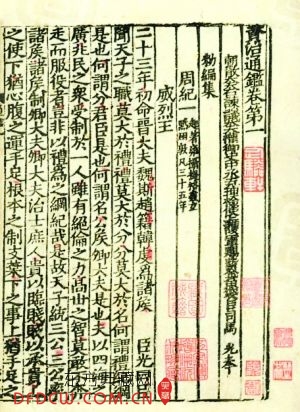 資治通鑑卷第一
朝散大夫右諫議大夫 司馬 光 奉
勑編集
周紀一 起著雍攝提格盡玄黓困敦凡三十五年
威烈王
二十三年初命晉大夫魏斯趙籍韓虔為諸侯 臣光
聞天子之職莫大於禮禮莫大於分分莫大於名何謂禮紀
是也何謂分君臣是也何謂名公侯卿大夫是也夫以四海
廣兆民之衆受制於一人雖有絕倫之力高世之智莫敢不
走而服役者豈非以禮為之綱紀哉是故天子統三公三公率
諸侯諸侯制卿大夫卿大夫治士庶人貴以臨賤賤以承貴上
之使下猶心腹之運手足根本之制支葉下之事上猶手足之
DFDCW.COM.CN